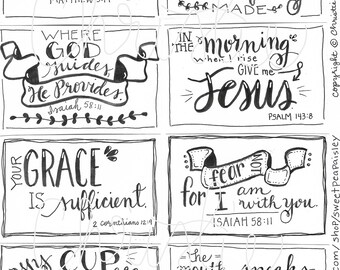 MATTHEW 5:9
MADE
WHERE
GOD
Guides,
He Provides
Isaiah 58:11
IN THE morning
when I rise
GIVE me
Jesus
PSALM 143:8
YOUR
GRACE
IS sufficient.
2 Corinthians 12:9
fear NOT
for I am
with you.
ISAIAH 58:11
my CUP
the
mouth speaks
copyright © Christie
.com/shop/sweetpeapaisley